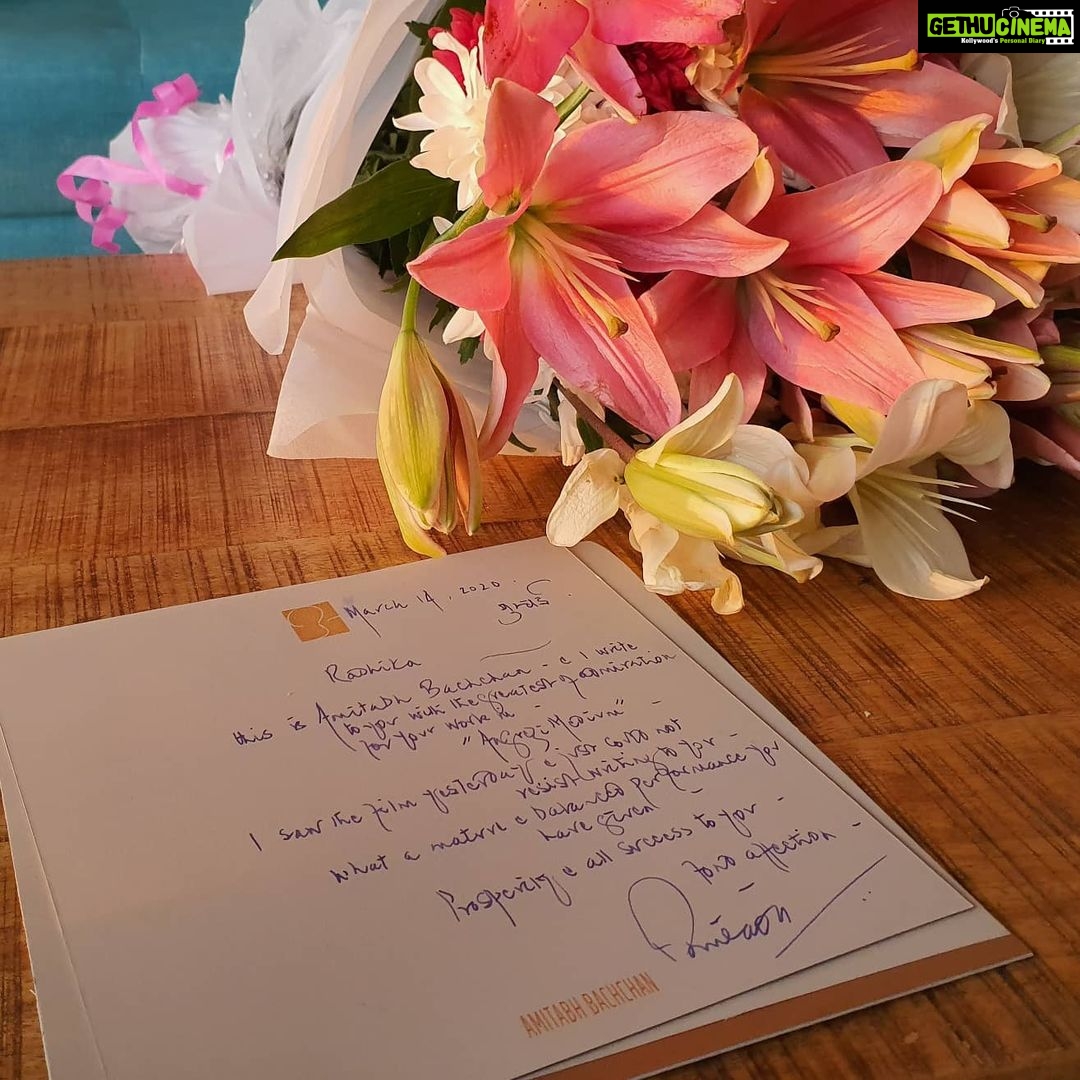 GETHU CINEMA
Kollywood's Personal Diary
March 14, 2020
Radhika
this is Amitabh Bachchan - & I write
to you with the greatest of admiration
for your work in -
"Angrezi Medium" -
I saw the film yesterday & just could not
resist writing to you -
what a mature & balanced performance you
have given -
Prosperity & all success to you -
fond affection -
AMITABH BACHCHAN